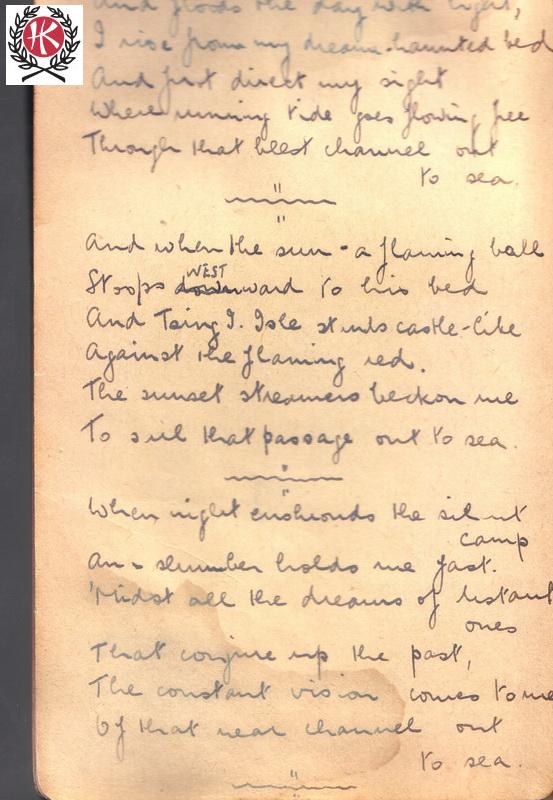 HK
And floods the day with light,
I rise from my dream-haunted bed
And first direct my sight
Where running tide goes flowing free
Through that blest channel out
to sea.
And when the sun - a flaming ball
Stoops downward WEST to his bed
And Tsing I. Isle stands castle-like
Against the flaming red.
The sunset streamers beckon me
To sail that passage out to sea.
When night enshrouds the silent
camp
And slumber holds me fast.
'Midst all the dreams of distant
ones
That conjure up the past,
The constant vision comes to me
Of that near channel out
to sea.